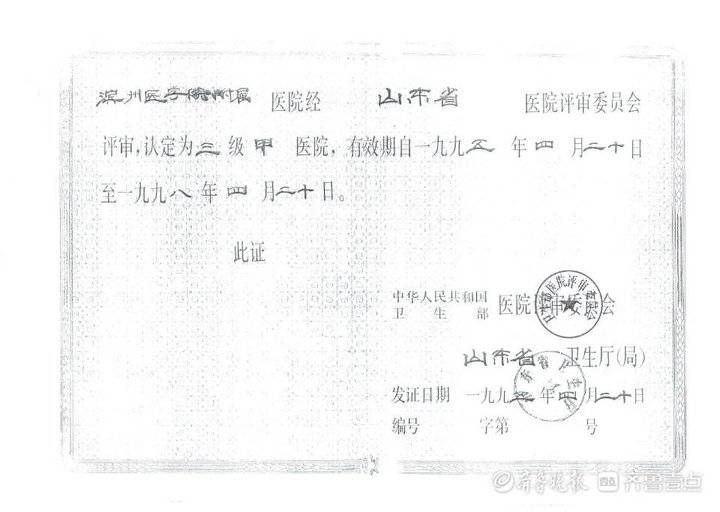 滨州医学院附属 医院经 山东省 医院评审委员会
评审,认定为 三 级 甲 医院,有效期自一九九五 年 四 月二十日
至一九九八年 四 月二十日。
此证
中华人民共和国
卫生部
医院评审委员会
卫生部医院评审委员会
山东省 卫生厅(局)
发证日期 一九九五年四月二十日
编号 字第 号
齐鲁晚报 齐鲁壹点